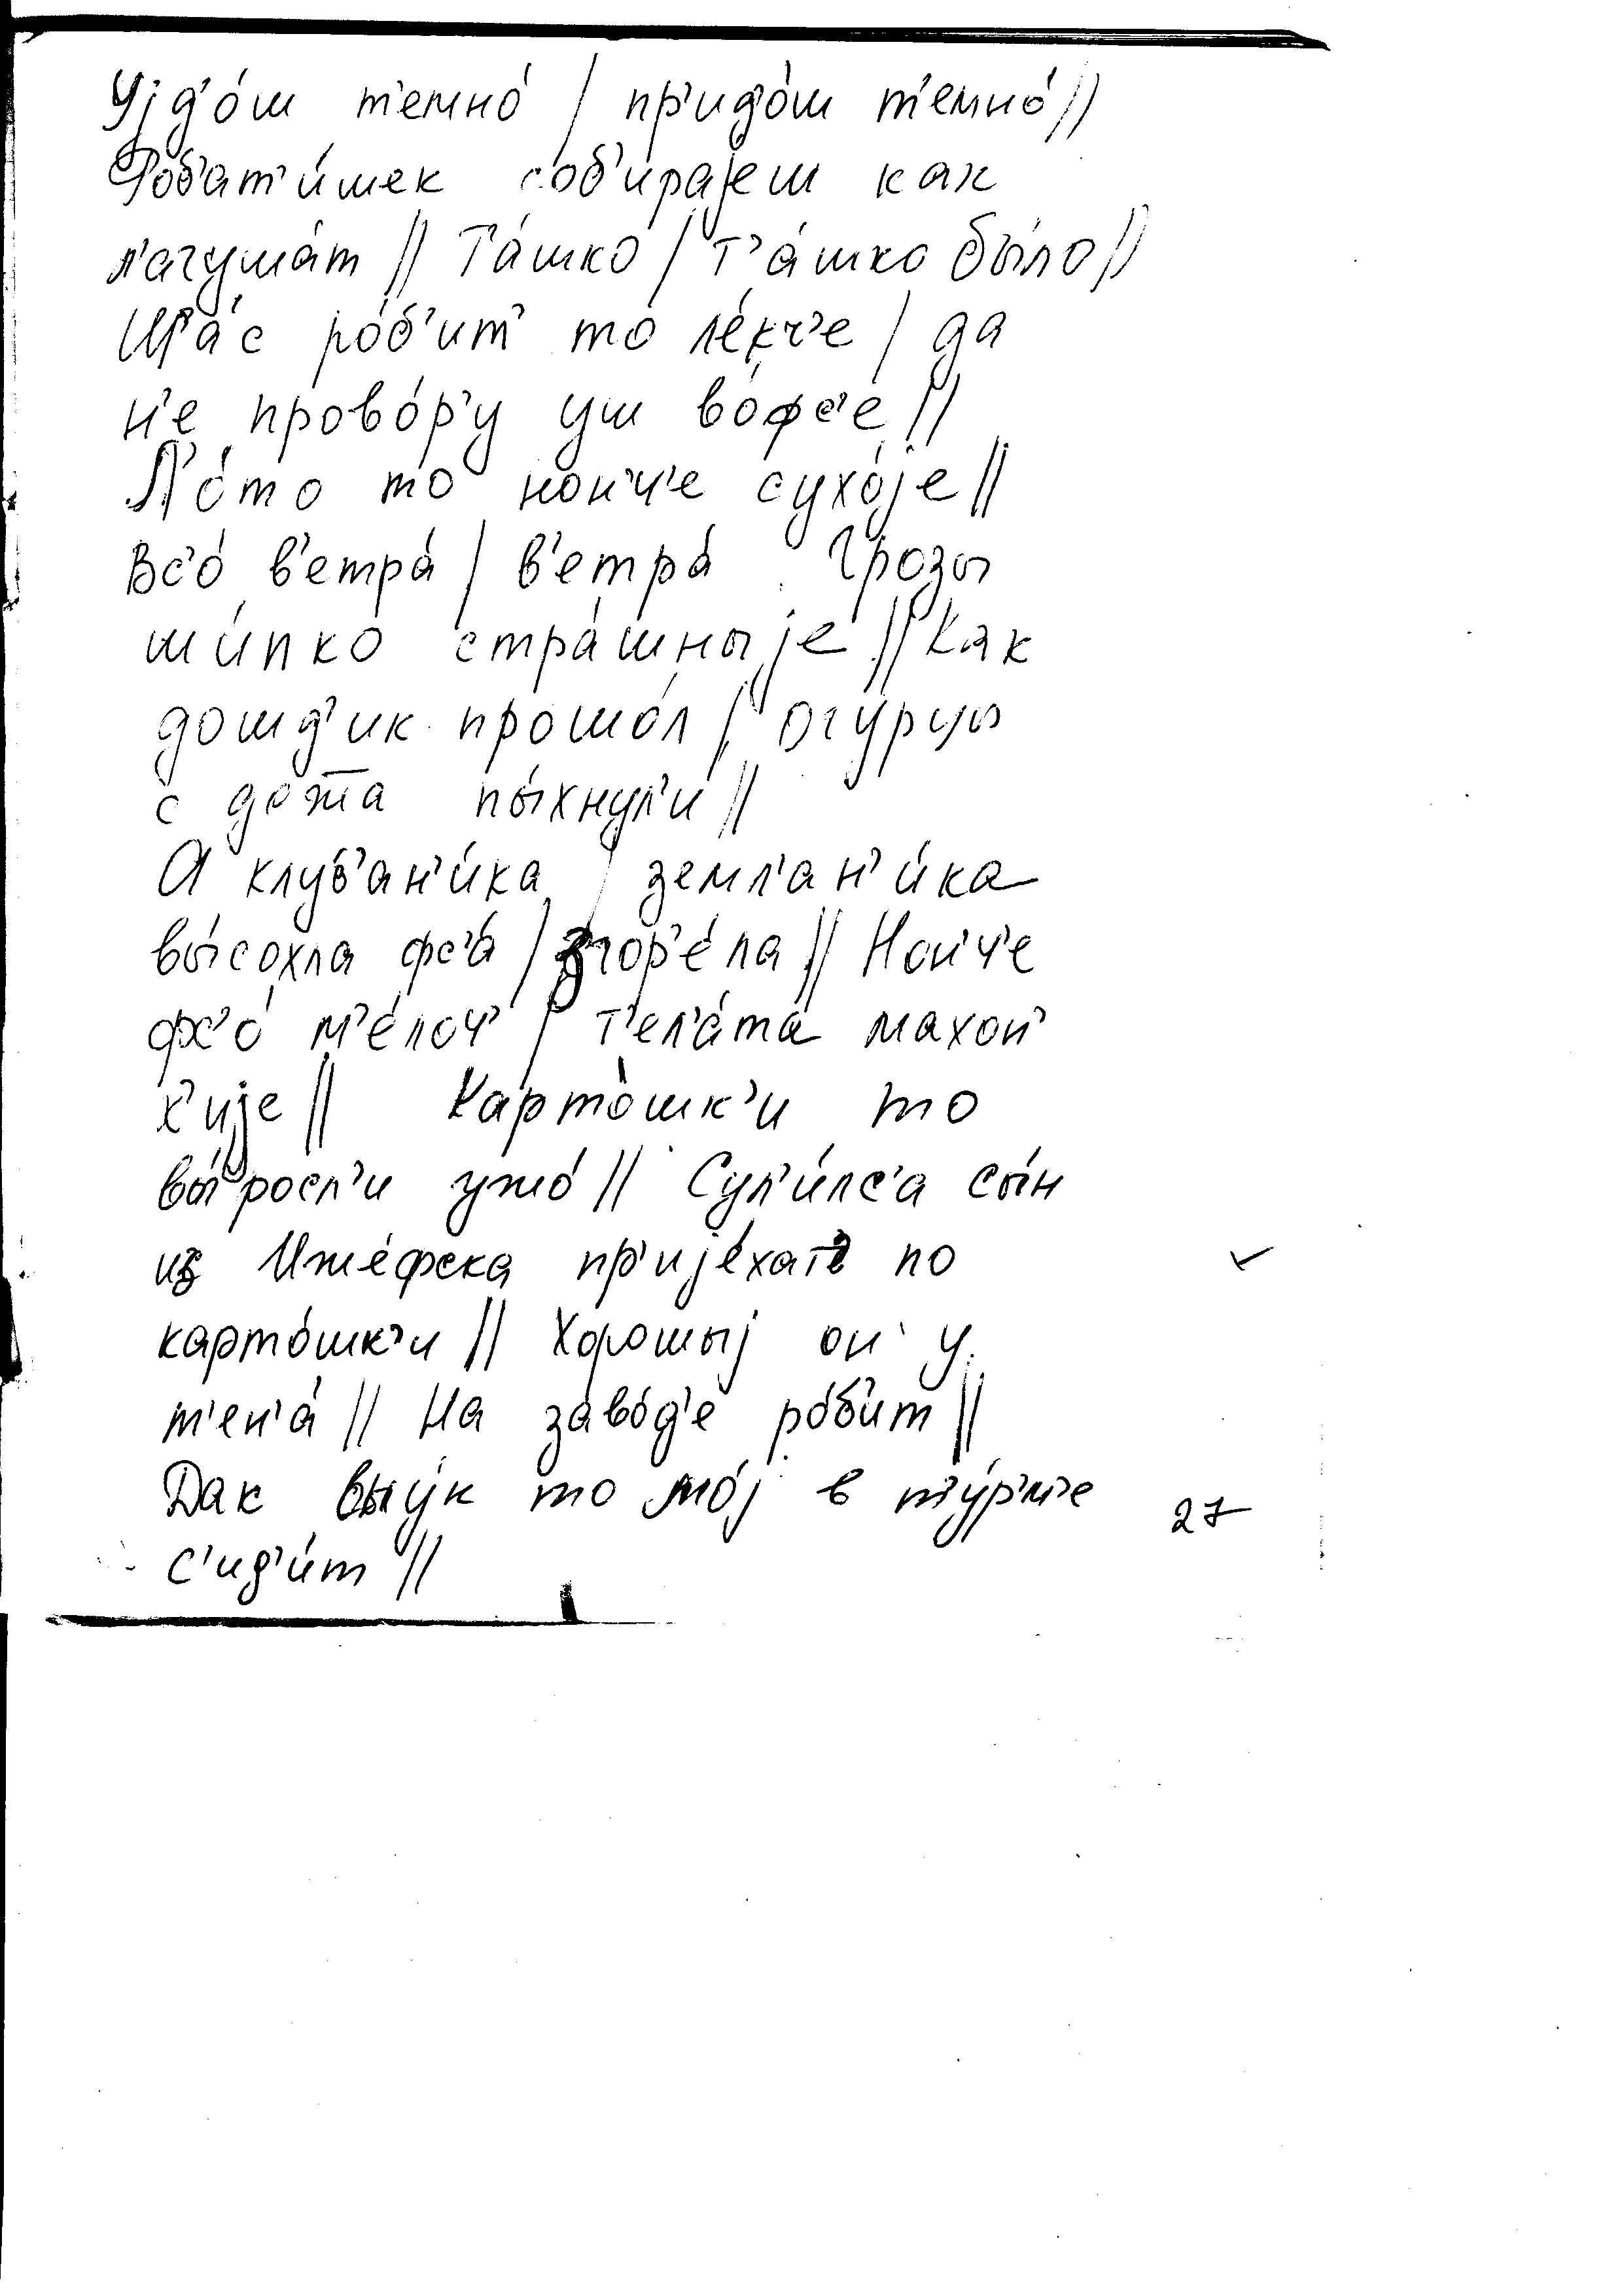 Уjд'о́ш т'емно́ / пр'ид'о́ш т'емно́ //
Роб'ат'и́шек соб'ира́jеш как
л'агуша́т // Т'а́шко / т'а́шко бы́ло //
Шш'а́с ро́б'ит' то ле́кч'е / да
н'е прово́р'у уш во́фс'е //
Л'о́то то нон'ч'е сухо́jе //
Вс'о́ в'етра́ / в'етра́ Грозы
ши́пко стра́шныjе // Как
дошд'ик прошо́л / огурцы
с дожжа пы́хнул'и //
А клуб'ан'и́ка / земл'ан'и́ка
вы́сохла фс'а́ / згор'е́ла // Нон'ч'е
фс'о́ м'е́лоч' / т'ел'а́та махон'
к'иjе // Карто́шк'и то
вы́росл'и ужо́ // Сул'и́лс'а сы́н
из Иже́фска пр'иjе́хат' по
карто́шк'и // Хорошыj он у
м'ен'а́ // На заво́д'е ро́б'ит //
Дак внук то мо́j в т'ур'м'е 27
с'ид'и́т //